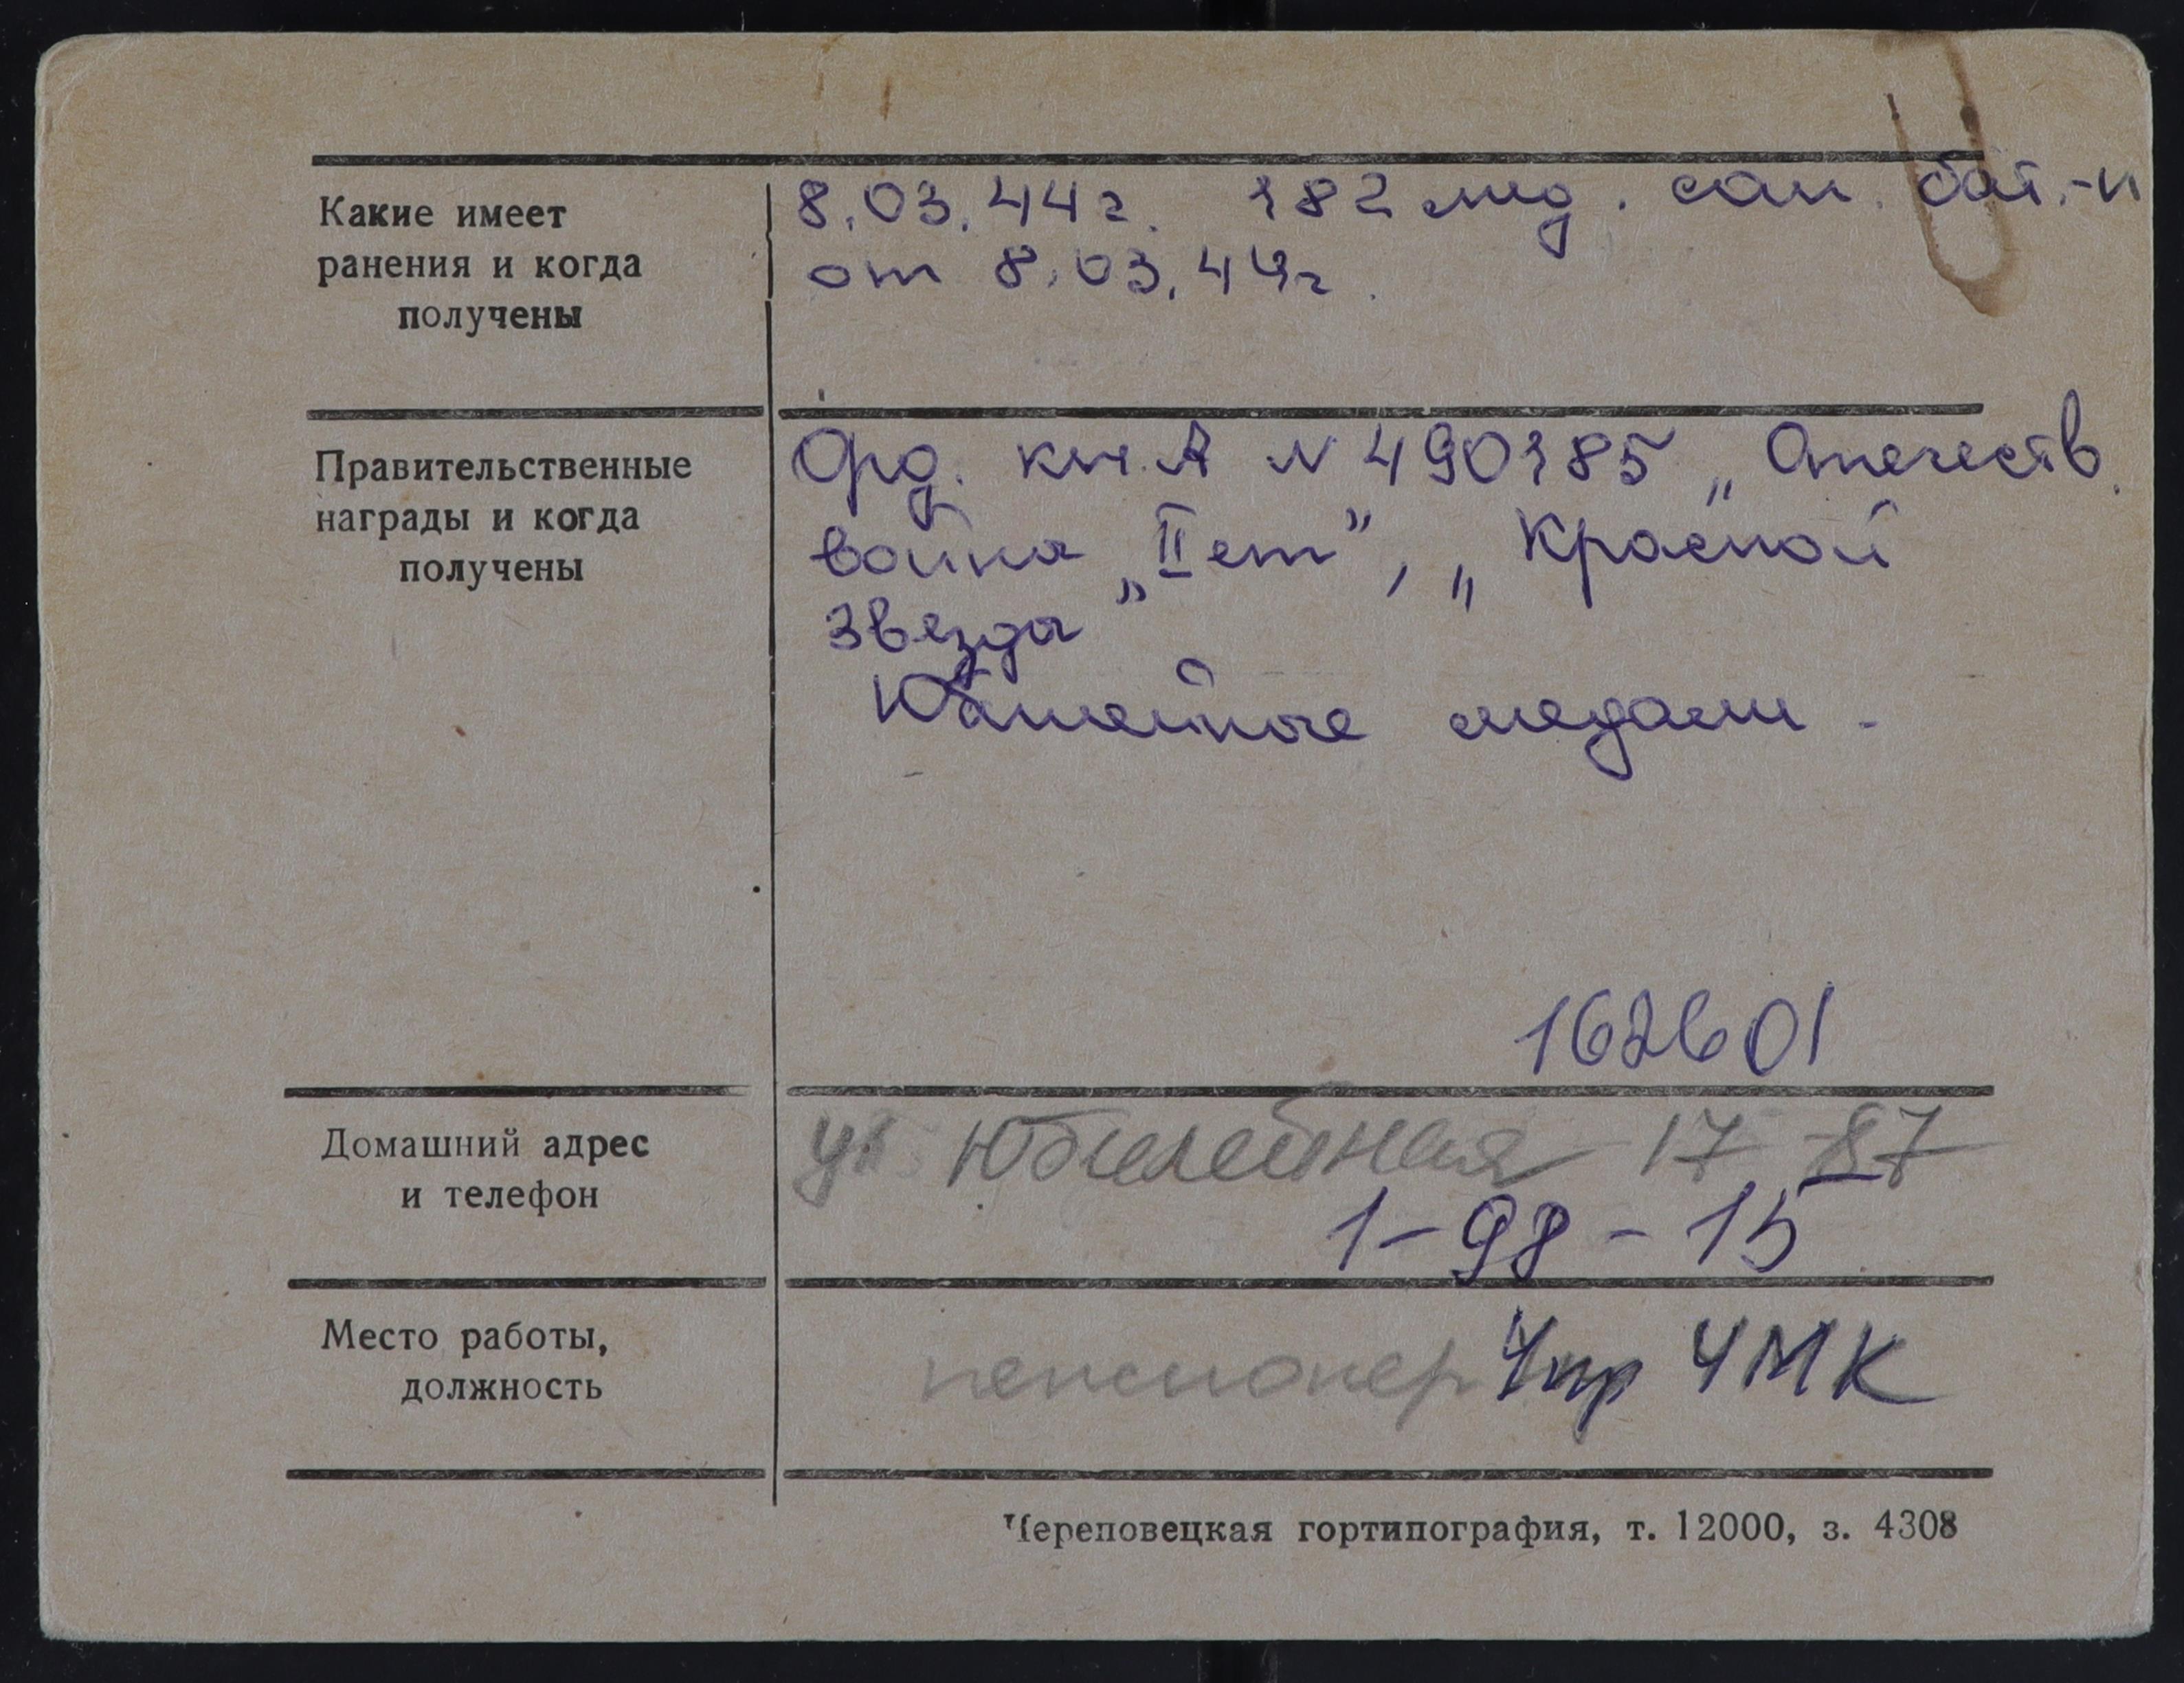 Какие имеет
ранения и когда
получены
8.03.44г. 182 мед. сан. бат.-н
от 8.03.44г.
Правительственные
награды и когда
получены
Орд. кн. А № 490185 „Отечеств.
война „II ст”, „Красной
Звезды”
Юбилейные медали.
162601
Домашний адрес
и телефон
ул Юбилейная 17-87
1-98-15
Место работы,
должность
пенсионер Упр ЧМК
Череповецкая гортипография, т. 12000, з. 4308